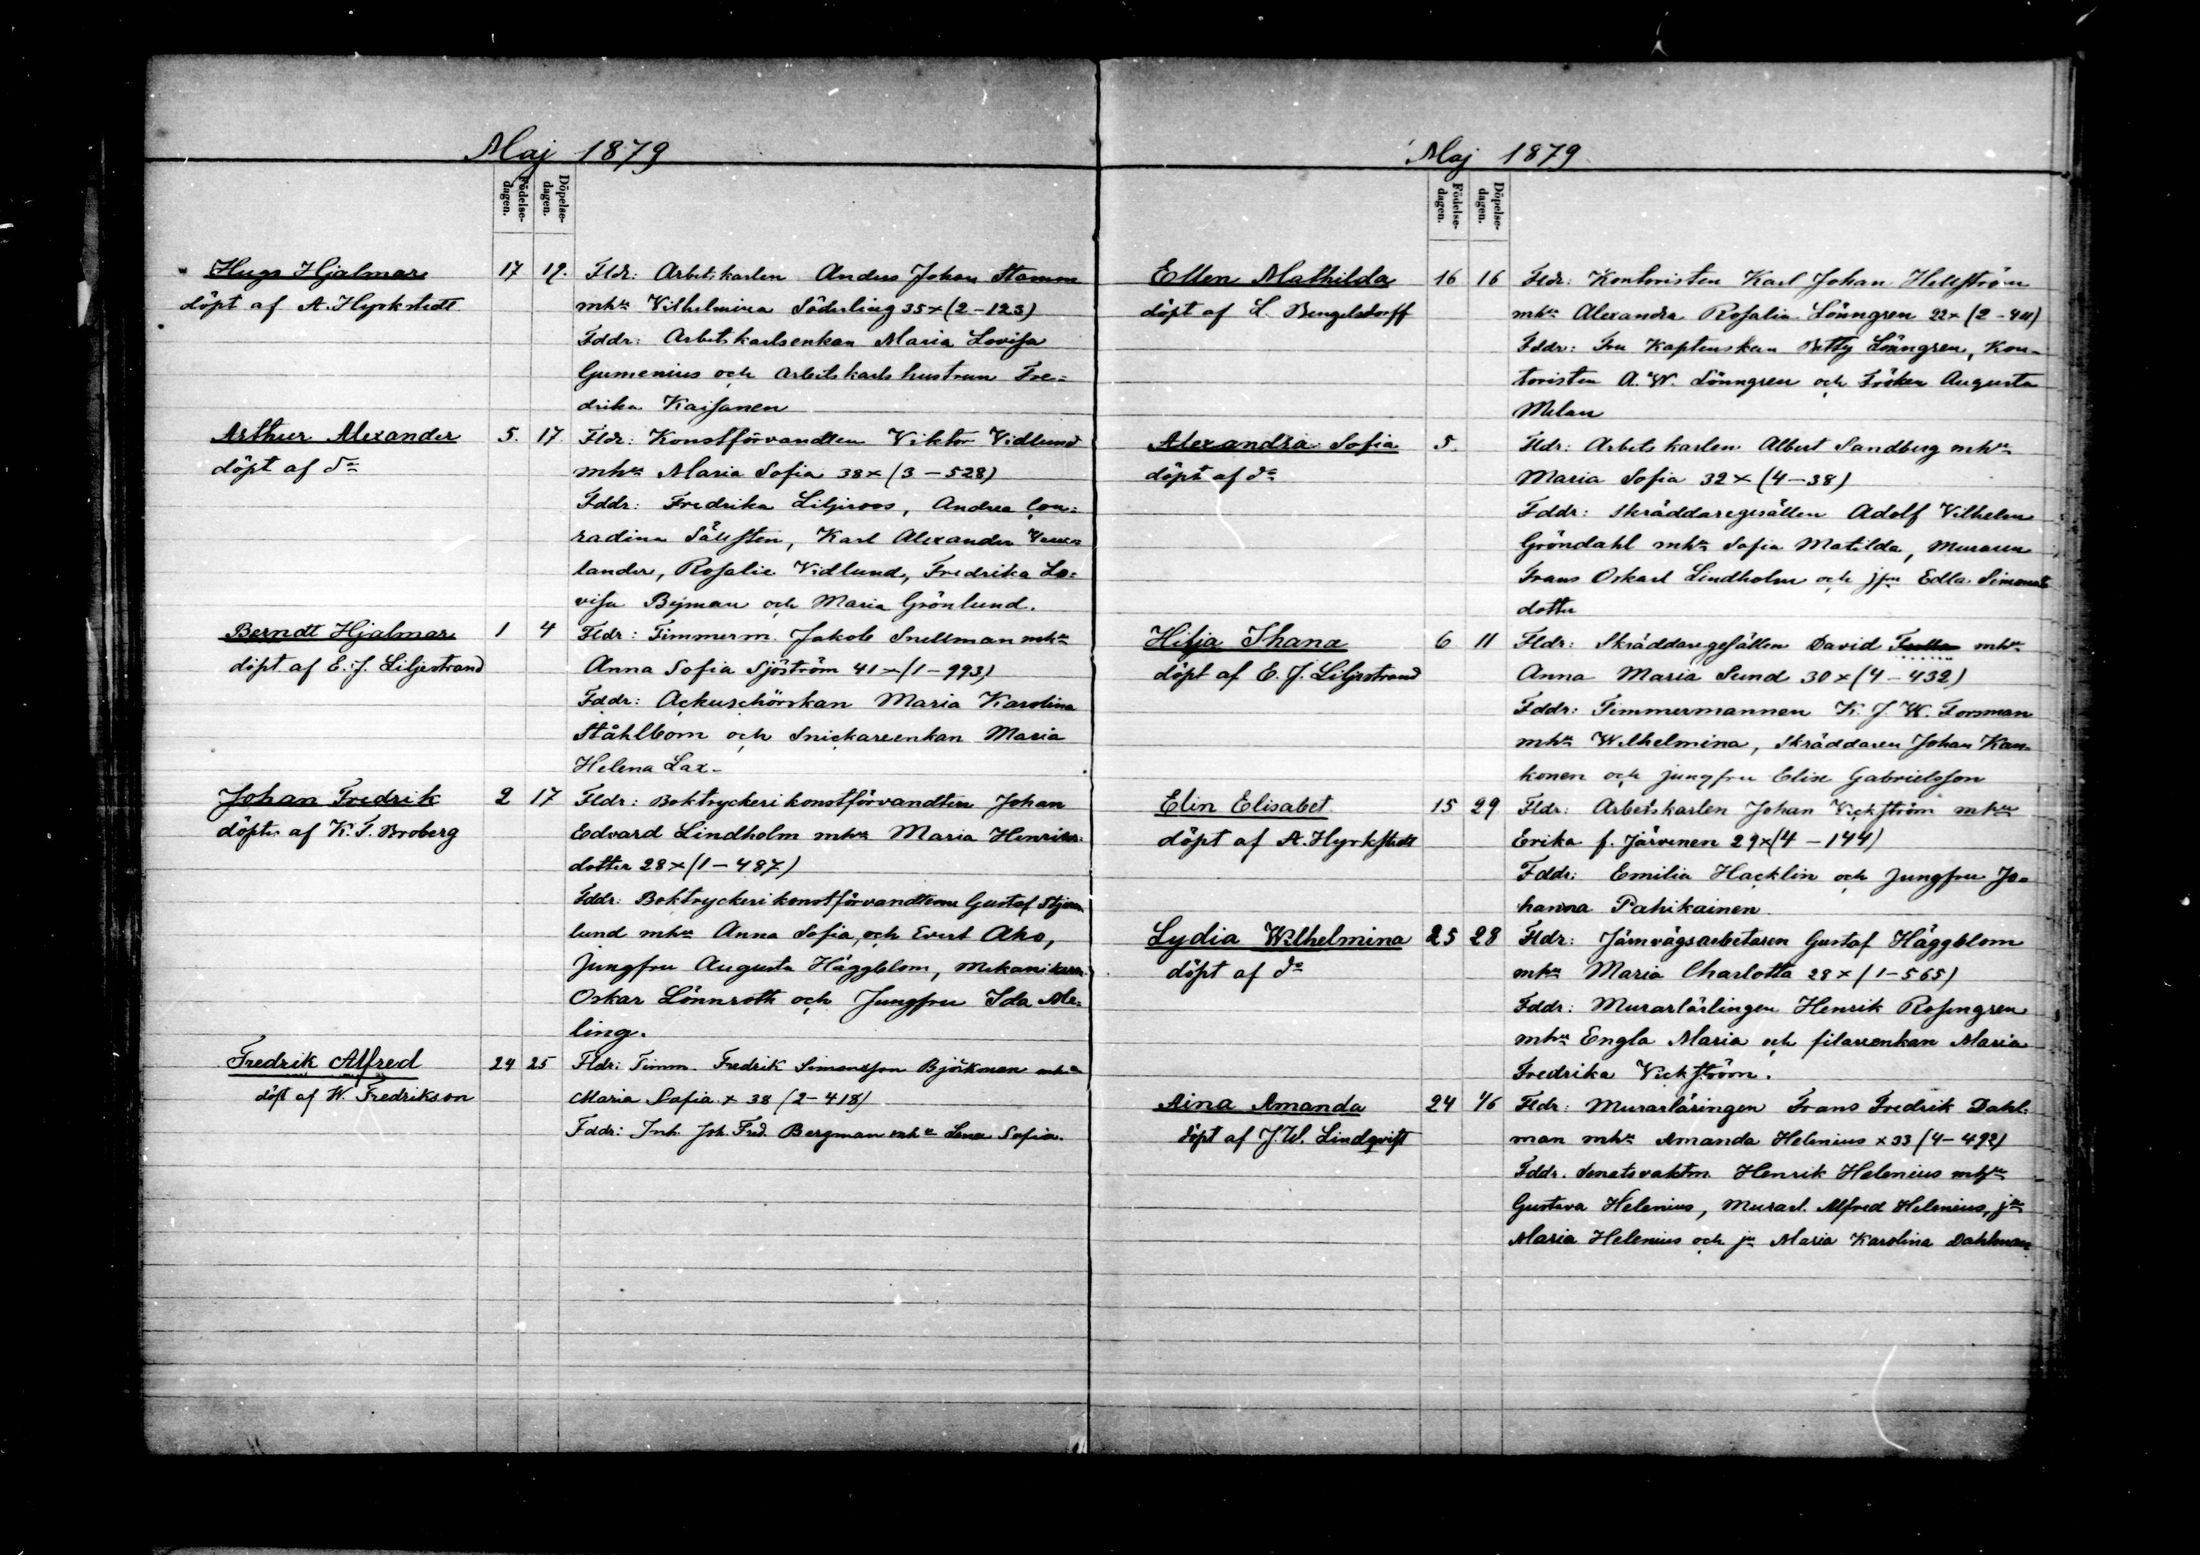 Maj 1879
Födelse-
dagen.
Döpelse-
dagen.
Hugo Hjalmar 17 19. Fldr: Arbetskarlen Anders Johan Stamm
döpt af A. Hyrkstedt mhu Vilhelmina Söderling 35 x (2-123)
Fddr: Arbetskarlsenkan Maria Lovisa
Gumenius och arbetskarls hustrun Fre-
drika Kaisanen
Arthur Alexander 5. 17. Fldr: Konstförvandten Viktor Vidlund
döpt af do mhu Maria Sofia 38 x (3-528)
Fddr: Fredrika Liljeroos, Andrea Con-
radina Sällsten, Karl Alexander
lander, Rosalie Vidlund, Fredrika Lo-
visa Bejman och Maria Grönlund.
Berndt Hjalmar 1 4 Fldr: Timmerm. Jakob Snellman mhu
döpt af E. J. Liljestrand Anna Sofia Sjöström 41 x (1-993)
Fddr: Ackuschörskan Maria Karolina
Ståhlbom och Snickareenkan Maria
Helena Lax-
Johan Fredrik 2 17 Fldr: Boktryckerikonstförvandten Johan
döpt af K. T. Broberg Edvard Lindholm mhu Maria Henriks-
dotter 28 x (1-487)
Fddr: Boktryckerikonstförvandterne Gustaf
lund mhu Anna Sofia, och Evert Aho,
Jungfru Augusta Häggblom, Mekanikern
Oskar Lönnroth och Jungfru Ida Me-
ling.
Fredrik Alfred 24 25 Fldr: Timm. Fredrik Simonsson Björkman mhu
döpt af W. Fredrikson Maria Sofia x 38 (2-418)
Fddr: Inh. Joh. Fred. Bergman mhu Lena Sofia.
Maj 1879.
Födelse-
dagen.
Döpelse-
dagen.
Ellen Mathilda 16 16 Fldr: Kontoristen Karl Johan Hellström
döpt af L. Bengelsdorff mhu Alexandra Rosalia Lönngren 22 x (2-44)
Fddr: Fru Kaptenskan Betty Lönngren, Kon-
toristen A. W. Lönngren och Fröken Augusta
Melan
Alexandra Sofia 5. Fldr: Arbetskarlen Albert Sandberg mhu
döpt af do Maria Sofia 32 x (4-38)
Fddr: Skräddaregesällen Adolf Vilhelm
Gröndahl mhu Sofia Matilda, Muraren
Frans Oskar Lindholm och jfru Edla Simons
dotter
Hilja Ihana 6 11 Fldr: Skräddaregesällen David mhu
döpt af E. J. Liljestrand Anna Maria Sund 30 x (4-432)
Fddr: Timmermannen K. J. W. Forsman
mhu Wilhelmina, Skräddaren Johan Kan-
konen och jungfru Elise Gabrielsson
Elin Elisabet 15 29 Fldr: Arbetskarlen Johan Vickström mhu
döpt af A. Hyrkstedt Erika f. Järvinen 29 x (4-144)
Fddr: Emilia Hacklin och Jungfru Jo-
hanna Pahikainen.
Lydia Wilhelmina 25 28 Fldr: Järnvägsarbetaren Gustaf Häggblom
döpt af do mhu Maria Charlotta 28 x (1-565)
Fddr: Murarlärlingen Henrik Rosengren
mhu Engla Maria och filarenkan Maria
Fredrika Vickström.
Aina Amanda 24 1/6 Fldr: Murarläringen Frans Fredrik Dahl-
döpt af J. W. Lindqvist man mhu Amanda Helenius x 33 (4-492)
Fddr. Senatsvaktm. Henrik Helenius mhu
Gustava Helenius, Murarl. Alfred Helenius, ju
Maria Helenius och ju Maria Karolina Dahlman